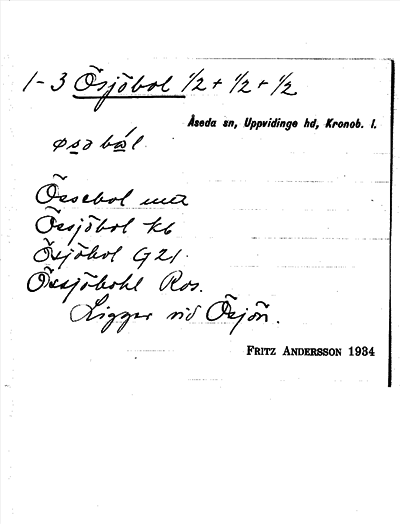 1-3 Ösjöbol 1/2 + 1/2 + 1/2
Åseda sn, Uppvidinge hd, Kronob. l.
øsəbål.
Össebol
Össjöbol kb
Ösjöbol G21.
Össjöbohl Ros.
Ligger vid Ösjön.
FRITZ ANDERSSON 1934